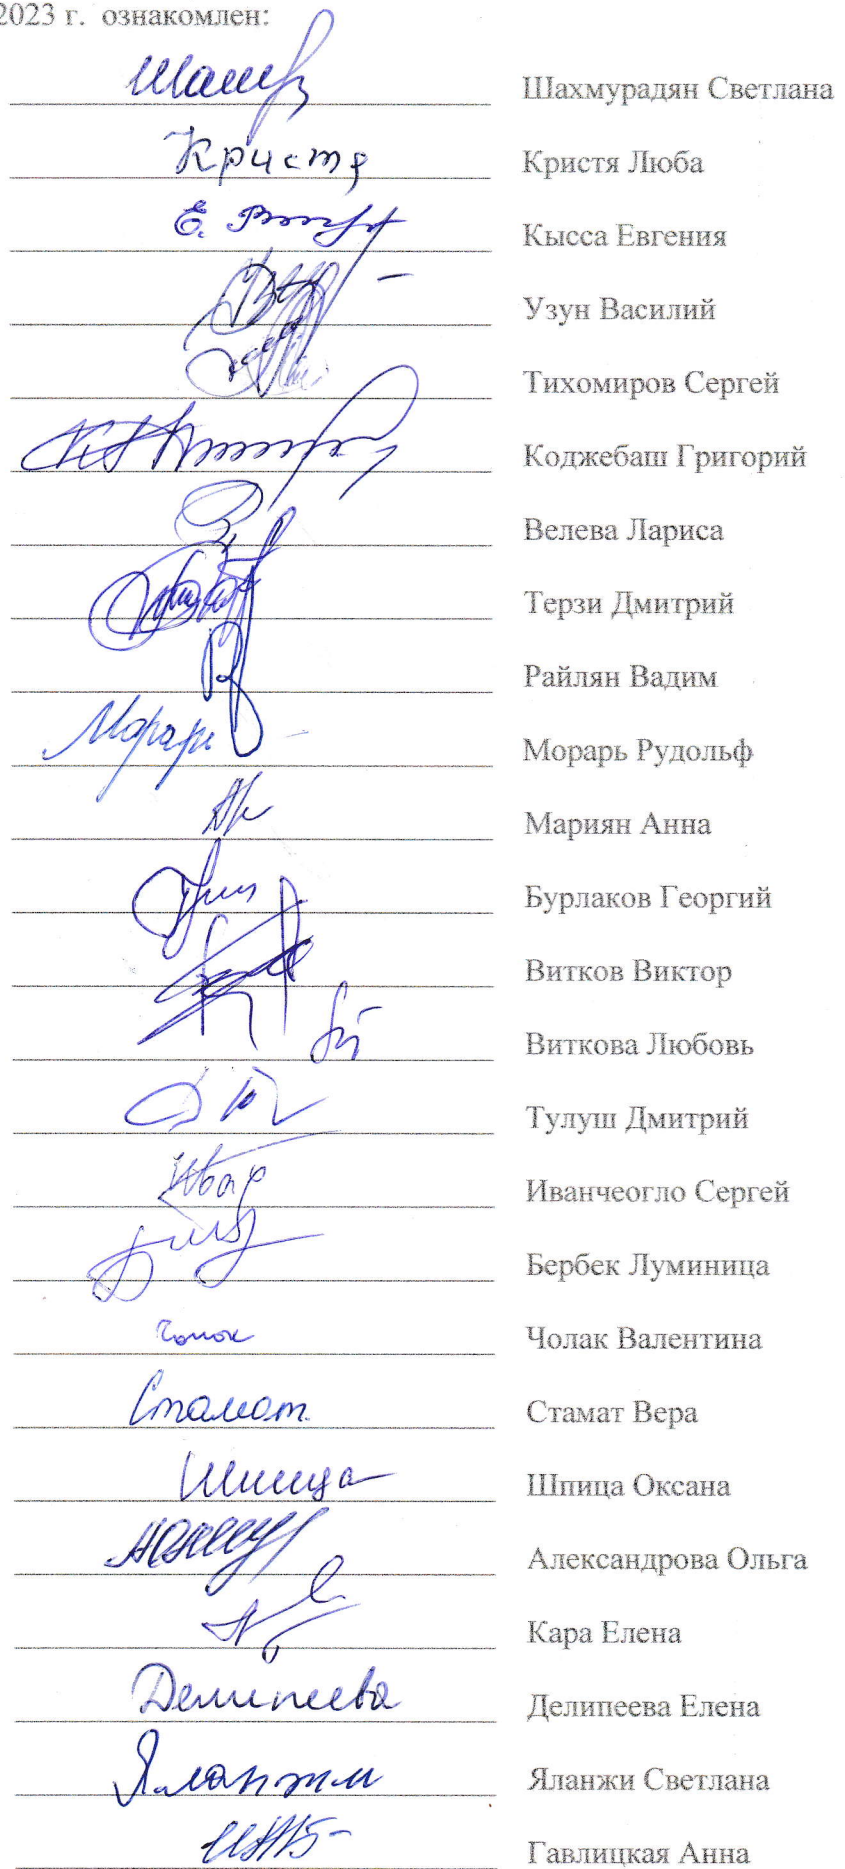 2023 г. ознакомлен:
Шахмурадян Светлана
Кристя Кристя Люба
Кысса Евгения
Узун Василий
Тихомиров Сергей
Коджебаш Григорий
Велева Лариса
Терзи Дмитрий
Райлян Вадим
Морарь Морарь Рудольф
Мариян Анна
Бурлаков Георгий
Витков Виктор
Виткова Любовь
Тулуш Дмитрий
Иванчеогло Сергей
Бербек Луминица
Чолак Валентина
Стамат Стамат Вера
Шпица Шпица Оксана
Александрова Ольга
Кара Елена
Делипеева Делипеева Елена
Яланжи Яланжи Светлана
Гавлицкая Анна